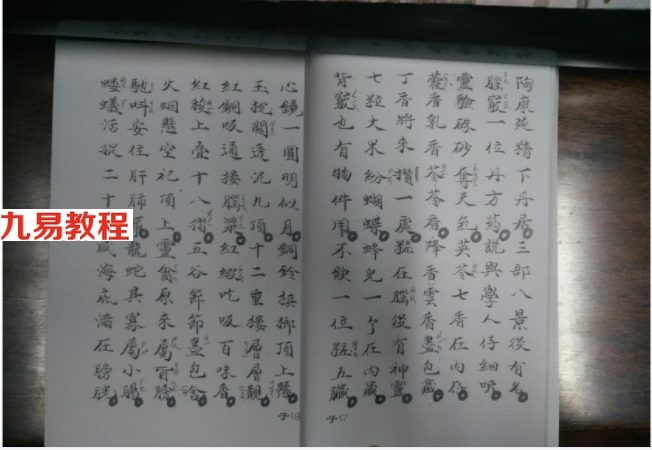 陶康死精下丹居三部八景後有名
腦竅一位丹方葯説與學人仔細听
靈驗硃砂奪天氣英苓七香在内存
藿香乳香苓苓香降香雲香盡包藏
丁香將來攢一處粧在腦後有神靈
七粒大米紛蝴蝶蜂兒一个在内藏
背竅也有物件用不缺一位粧五臟
子17
心鏡一圓明似月銅鈴振鄉頂上懸
玉枕關透泥丸頂十二重摟層層觀
紅銅吸通接腦漿紅綴吒吸百味香
紅接上叠十八摺五谷節節盡包含
火烟懸空祀頂上靈龠原來屬百膀
馳呌安住肝肺 龍蛇具寡屬小腸
蟻活捉二十 海底滿在膀胱
子18
九易教程